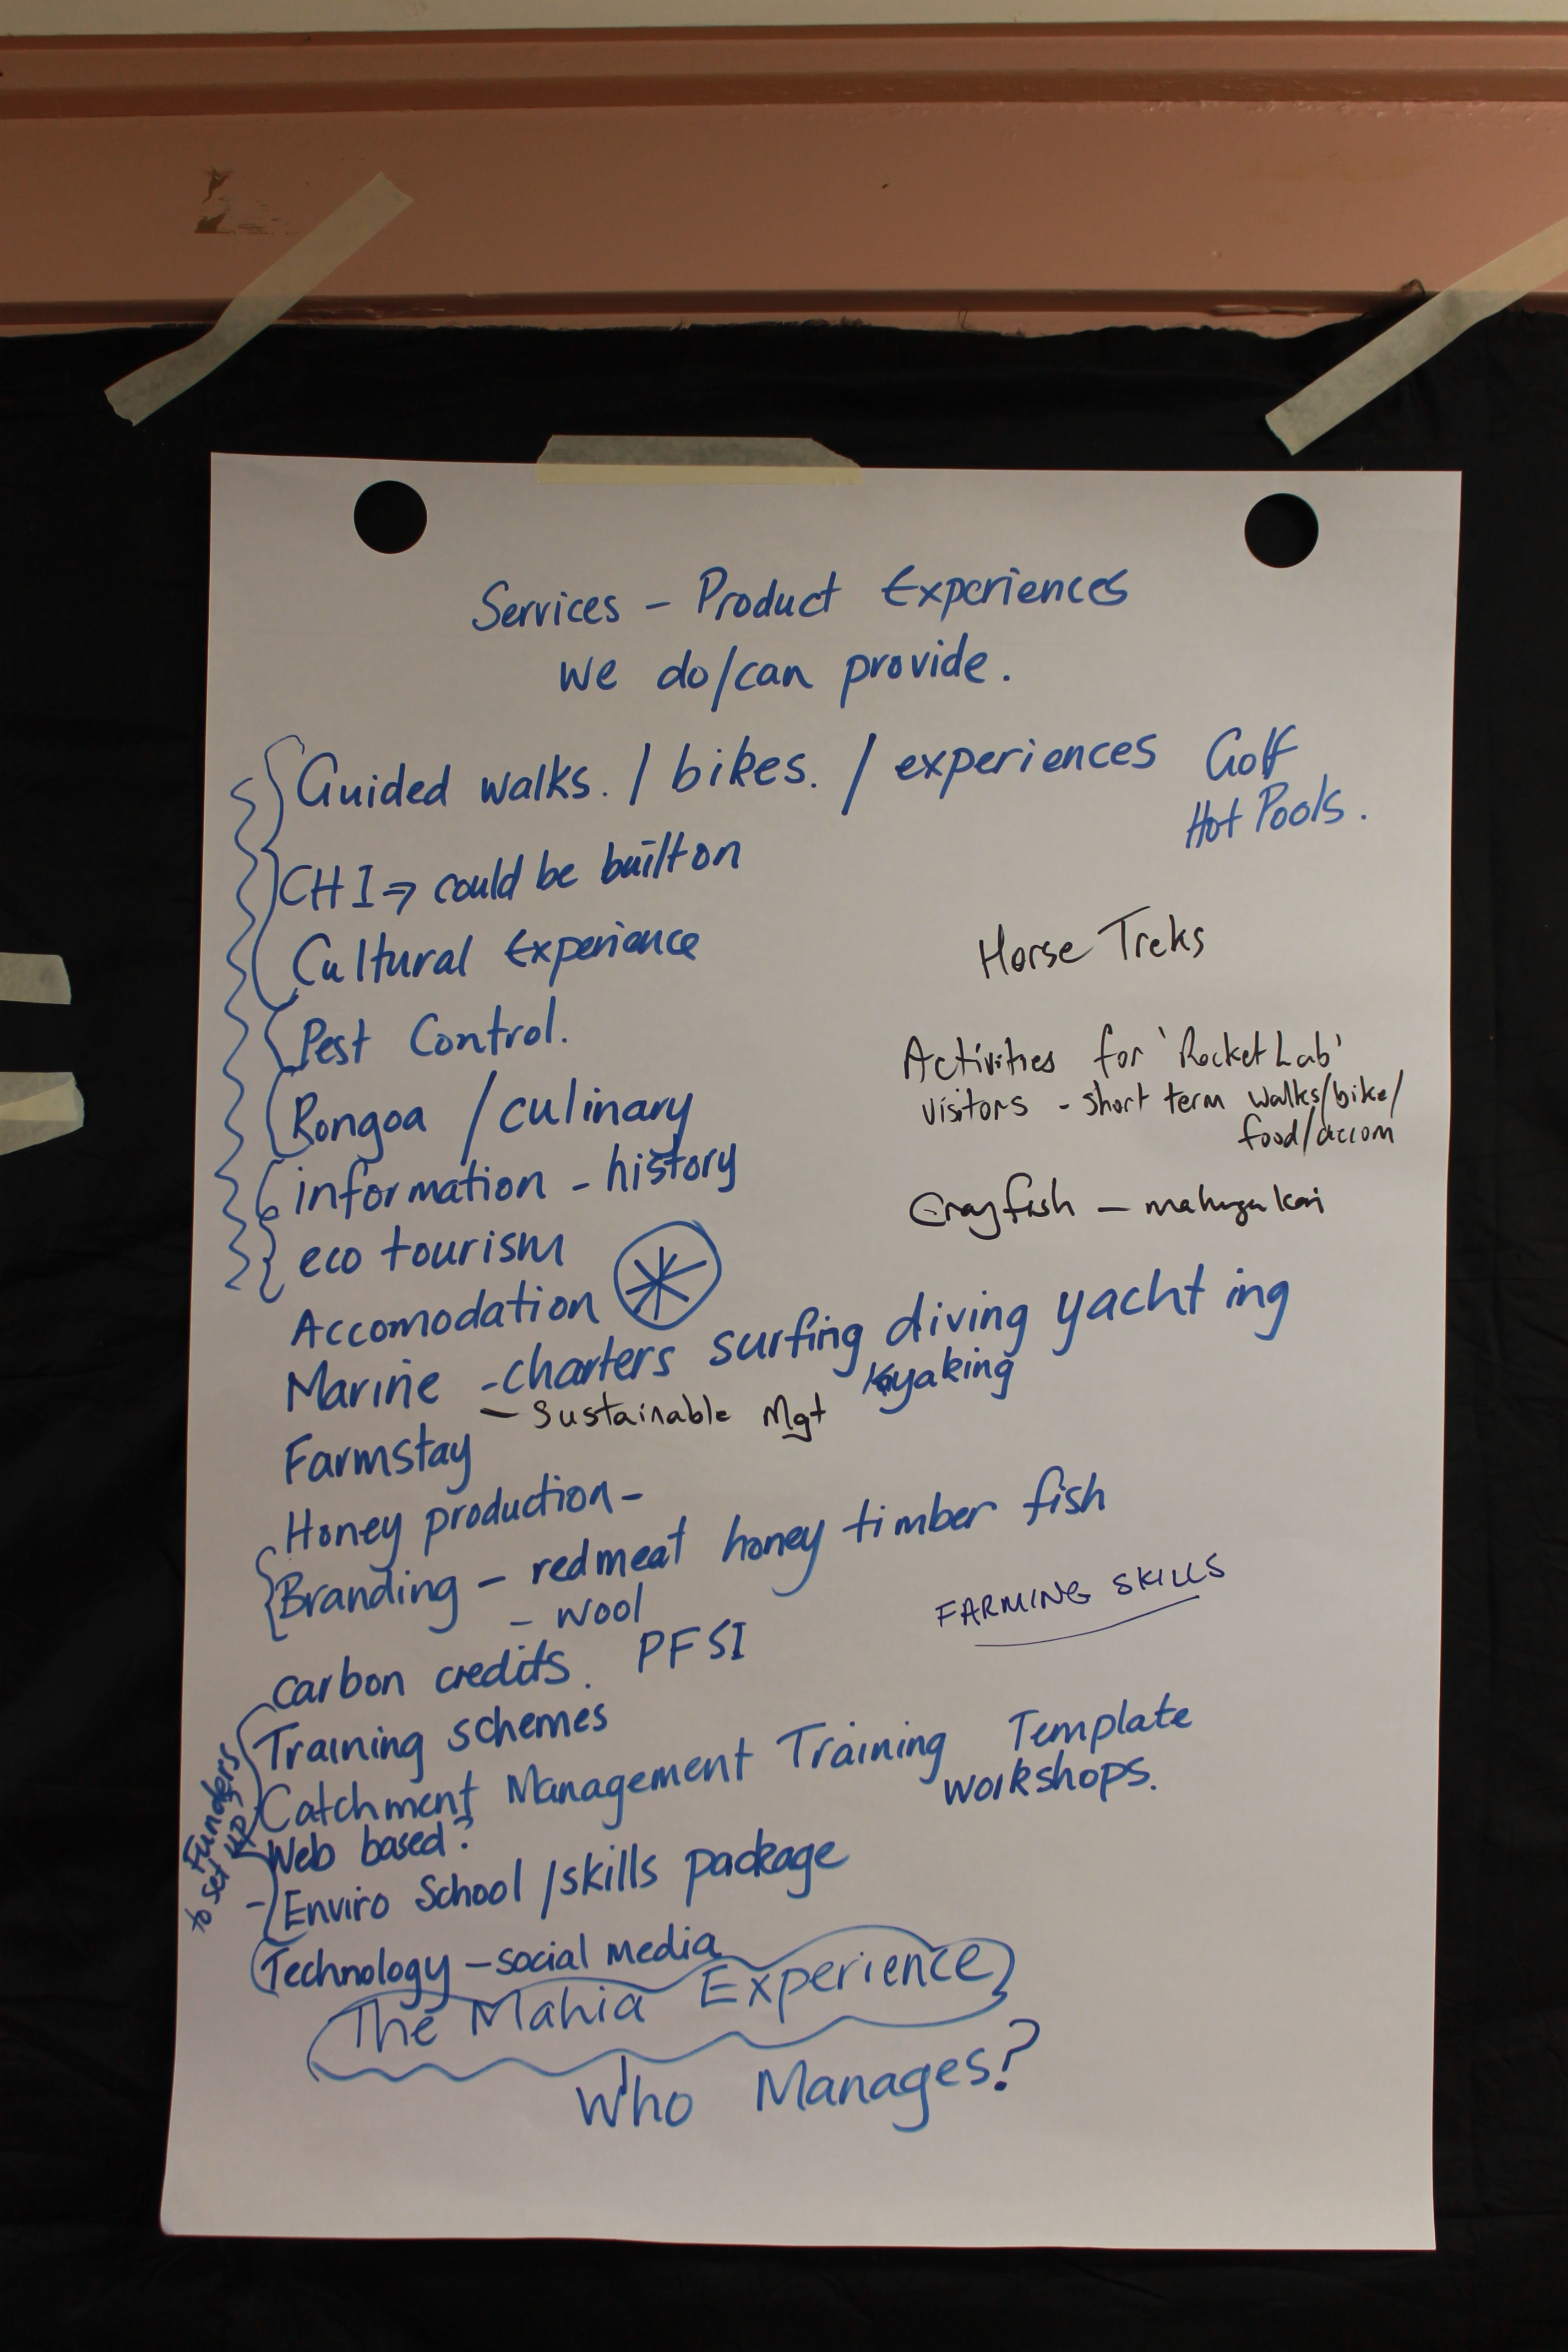 Services - Product Experiences
we do/can provide.
Guided walks. / bikes. / experiences Golf
Hot Pools.
CHI ⇒ could be built on
Cultural Experience
Horse Treks
Pest Control.
Activities for 'Rocket Lab'
visitors - short term walks/bike/
food/accom
Rongoa / culinary
information - history
Crayfish - mahinga kai
eco tourism
Accomodation
Marine - charters surfing diving yachting
Kayaking
- Sustainable Mgt
Farmstay
Honey production -
Branding - redmeat honey timber fish
- wool
FARMING SKILLS
carbon credits. PFSI
Training schemes
Catchment Management Training Template
workshops.
Web based?
- Enviro School / skills package
Funders
to set up
Technology - social media
The Mahia Experience
Who Manages?